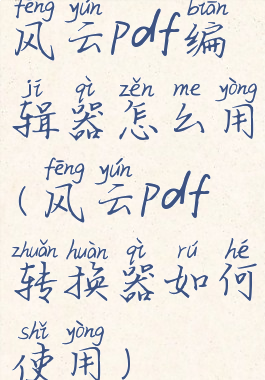 fēng yún biān
风云pdf编
jí qì zěn me yòng
辑器怎么用
fēng yún
(风云pdf
zhuǎn huàn qì rú hé
转换器如何
shǐ yòng
使用)